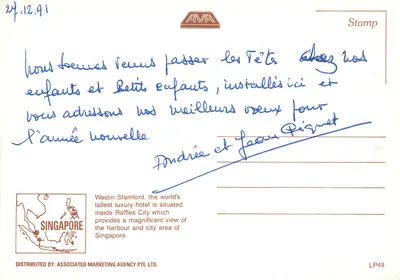 27.12.91
AMA
Stamp
Nous sommes venus passer les Fêtes chez nos
enfants et Petits enfants, installés ici et
vous adressons nos meilleurs voeux pour
l'année nouvelle
Andrée et Jean
SINGAPORE
Westin Stamford, the world's
tallest luxury hotel is situated
inside Raffles City which
provides a magnificent view of
the harbour and city area of
Singapore.
DISTRIBUTED BY: ASSOCIATED MARKETING AGENCY PTE. LTD.
LP49